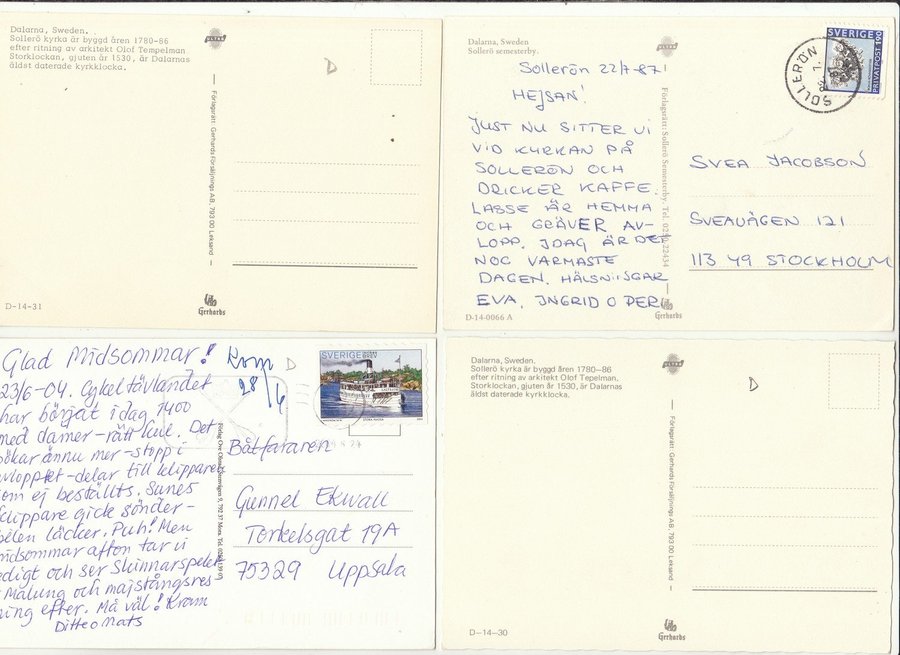 Dalarna, Sweden.
Sollerö kyrka är byggd åren 1780-86
efter ritning av arkitekt Olof Tempelman
Storklockan, gjuten år 1530, är Dalarnas
äldst daterade kyrkklocka.
ULTRA
D
Förlagsrätt: Gerhards Försäljnings AB, 793 00 Leksand
D-14-31
Gerhards
Dalarna, Sweden
Sollerö semesterby.
ULTRA
Sollerön 22/7-87
HEJSAN!
JUST NU SITTER VI
VID KYRKAN PÅ
SOLLERÖN OCH
DRICKER KAFFE.
LASSE ÄR HEMMA
OCH GRÄVER AV-
LOPP. IDAG ÄR DET
NOG VARMASTE
DAGEN. HÄLSNINGAR
EVA, INGRID O PER
Förlagsrätt: Sollerö Semesterby. Tel. 0250/22434
SVERIGE
PRIVATPOST 190
SOLLERÖN
SVEA JACOBSON
SVEAVÄGEN 121
113 49 STOCKHOLM
D-14-0066 A
Gerhards
Glad Midsommar!
23/6-04. Cykeltävlandet
har börjat i dag 1400
med damer-rätt kul. Det
bökar ännu mer-stopp i
avloppet-delar till klippare
som ej beställts. Sunes
klippare gick sönder-
bilen läcker. Puh! Men
midsommar afton tar vi
ledigt och ser Skinnarspelet
i Malung och majstångsres
ning efter. Må väl! Kram
Ditte o Mats
Kom
28/6
D
SVERIGE
Båtfararen
Gunnel Ekwall
Torkelsgat 19A
75329 Uppsala
Dalarna, Sweden.
Sollerö kyrka är byggd åren 1780-86
efter ritning av arkitekt Olof Tepelman.
Storklockan, gjuten år 1530, är Dalarnas
äldst daterade kyrkklocka.
ULTRA
D
Förlagsrätt: Gerhards Försäljnings AB, 793 00 Leksand
D-14-30
Gerhards